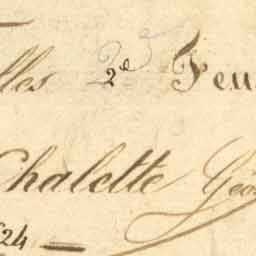 lles 2e Feu
Chalette Géo
24